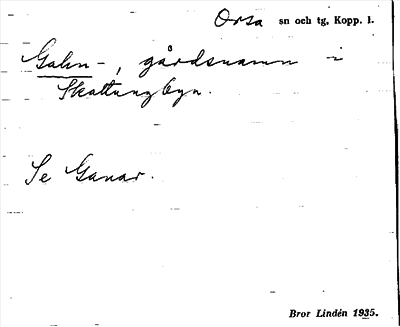 Orsa sn och tg, Kopp. l.
Galin-, gårdsnamn i
Skattungbyn.
Se Ganar.
Bror Lindén 1935.